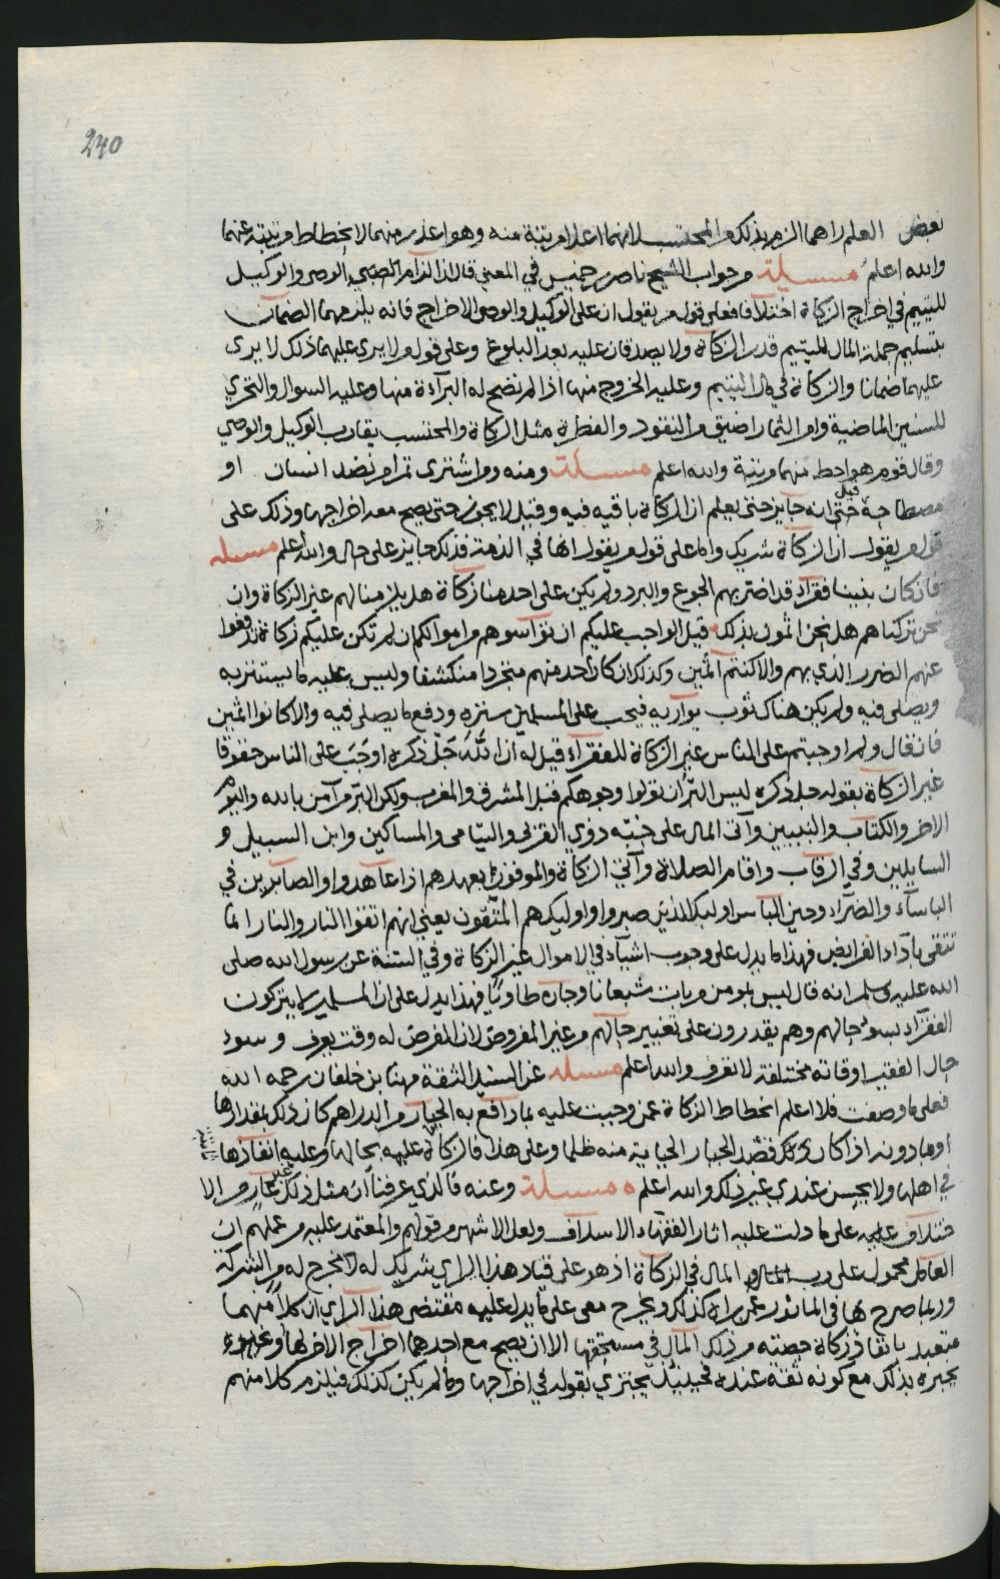 240
بعض العلم راهما الزم بذلك والمحتسب لانهما اعلا مرتبة منه وهو اعذر منهما لانحطاط مرتبته عنهما
والله اعلم مسئلة من جواب الشيخ ناصر بن خميس في المعني قال اذ الزام الصبي الوصي والوكيل
لليتيم في اخراج الزكاة اختلافا فعلى قول من يقول ان على الوكيل والوصي الاخراج فانه يلزمهما الضمان
بتسليم جملة المال لليتيم قدر الزكاة ولا يصدقان عليه بعد البلوغ وعلى قول من لا يرى عليهما ذلك لا يرى
عليهما ضمانا والزكاة في مال اليتيم وعليه الخروج منها اذا لم تصح له البرآءة منها وعليه السوال والتحري
للسنين الماضية وامر الثمار اضيق من النقود والفطرة مثل الزكاة والمحتسب يقارب الوكيل والوصي
وقال قوم هو احط منهما مرتبة والله اعلم مسئلة ومنه ومن اشترى تمرا من نضد انسان او
مصطاحه قيل انه جايز حتى يعلم ان الزكاة باقيه فيه وقيل لا يجوز حتى يصح معه اخراجها وذلك على
قول من يقول ان الزكاة شريك واما على قول من يقول انها في الذمة فذلك جايز على حال والله اعلم مسئله
فان كان بيننا فقرآء قد اضر بهم الجوع والبرد ولم يكن على احد منا زكاة هل يلزمنا لهم غير الزكاة وان
نحن تركناهم هل نحن اثمون بذلك قيل الواجب عليكم ان تواسوهم من اموالكم ان لم تكن عليكم زكاة تدفعوا
عنهم الضرر الذي بهم والا كنتم آثمين وكذلك ان كان احد منهم متجردا منكشفا وليس عليه ما يستتر به
ويصلى فيه ولم يكن هناك ثوب يواريه فيجب على المسلمين ستره ودفع ما يصلى فيه والا كانوا اثمين
فان قال ولم اوجبتم على الناس غير الزكاة للفقرآء قيل له ان الله جل ذكره اوجب على الناس حقوقا
غير الزكاة بقوله جل ذكره ليس البر أن تولوا وجوهكم قبل المشرق والمغرب ولكن البر من آمن بالله واليوم
الاخر والكتاب والنبيين وآتى المال على حبه ذوي القربى واليتامى والمساكين وابن السبيل و
السايلين وفي الرقاب واقام الصلاة وآتى الزكاة والموفون بعهدهم اذا عاهدوا والصابرين في
الباسآء والضرآء وحين الباس اوليك الذين صدقوا واوليك هم المتقون يعني انهم اتقوا النار والنار انما
تتقى باداء الفرايض فهذا ما يدل على وجوب اشيآء في الاموال غير الزكاة وفي السنة عن رسول الله صلى
الله عليه وسلم انه قال ليس بمومن من بات شبعانا وجاره طاويا فهذا يدل على ان المسلمين لا يتركون
الفقرآء بسوء حالهم وهم يقدرون على تغيير حالهم من غير المفروض لان المفرض له وقت يعرف وسوء
حال الفقير اوقاته مختلفة لا تعرف والله اعلم مسئله عن السيد الثقة مهنا بن خلفان رحمه الله
فعلى ما وصفت فلا اعلم انحطاط الزكاة عمن وجبت عليه بما دافع به الجبار من الدراهم كان ذلك بمقدارها
او ما دونه اذا كان ذلك قصد الجبار الجباية منه ظلما وعلى هذا فالزكاة عليه بحالها وعليه انفاذها
في اهلها ولا يحسن عندي غير ذلك والله اعلم مسئلة وعنه فالذي عرفنا ان مثل ذلك غير عار من الا
ختلاف عليه على ما دلت عليه اثار الفقهاء الاسلاف ولعل الاشهر من قولهم والمعتمد عليه من عملهم ان
العامل محمول على رب المال في الزكاة اذ هو على قياد هذا الراي شريك له لا مخرج له من الشركة
وربما صرح بها في الماثور عمن راه كذلك ويخرج معي على ما يدل عليه مقتضى هذا الراي ان كلا منهما
متعبد بانفاذ زكاة حصته من ذلك المال في مستحقها الا ان يصح مع احدهما اخراج الاخر لها
يخبره بذلك مع كونه ثقة عنده فحينيذ يجتزي بقوله في اخراجها وما لم يكن كذلك فيلزم كلا منهم